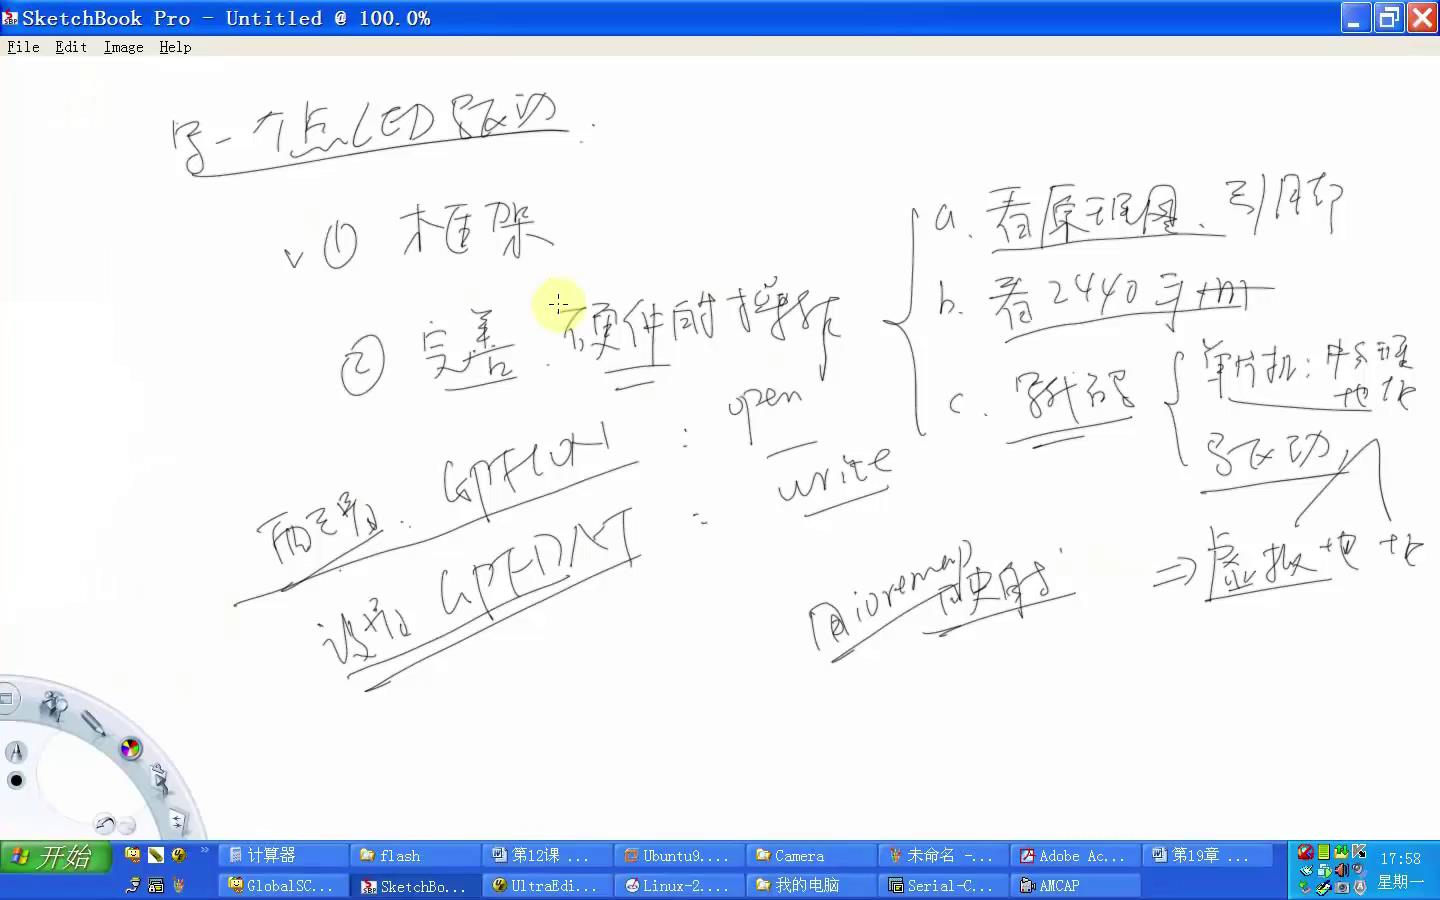 SketchBook Pro - Untitled @ 100.0%
File Edit Image Help
写一个点LED驱动.
√① 框架
② 完善.硬件的操作
a. 看原理图、引脚
b. 看2440手册
c. 写代码
单片机:
物理地址
驱动
⇒虚拟地址
用ioremap映射
配置. GPFCON : open
设置 GPFDAT : write
开始
计算器
flash
第12课 ...
Ubuntu9....
Camera
未命名 -...
Adobe Ac...
第19章 ...
17:58
GlobalSC...
SketchBo...
UltraEdi...
Linux-2....
我的电脑
Serial-C...
AMCAP
星期一